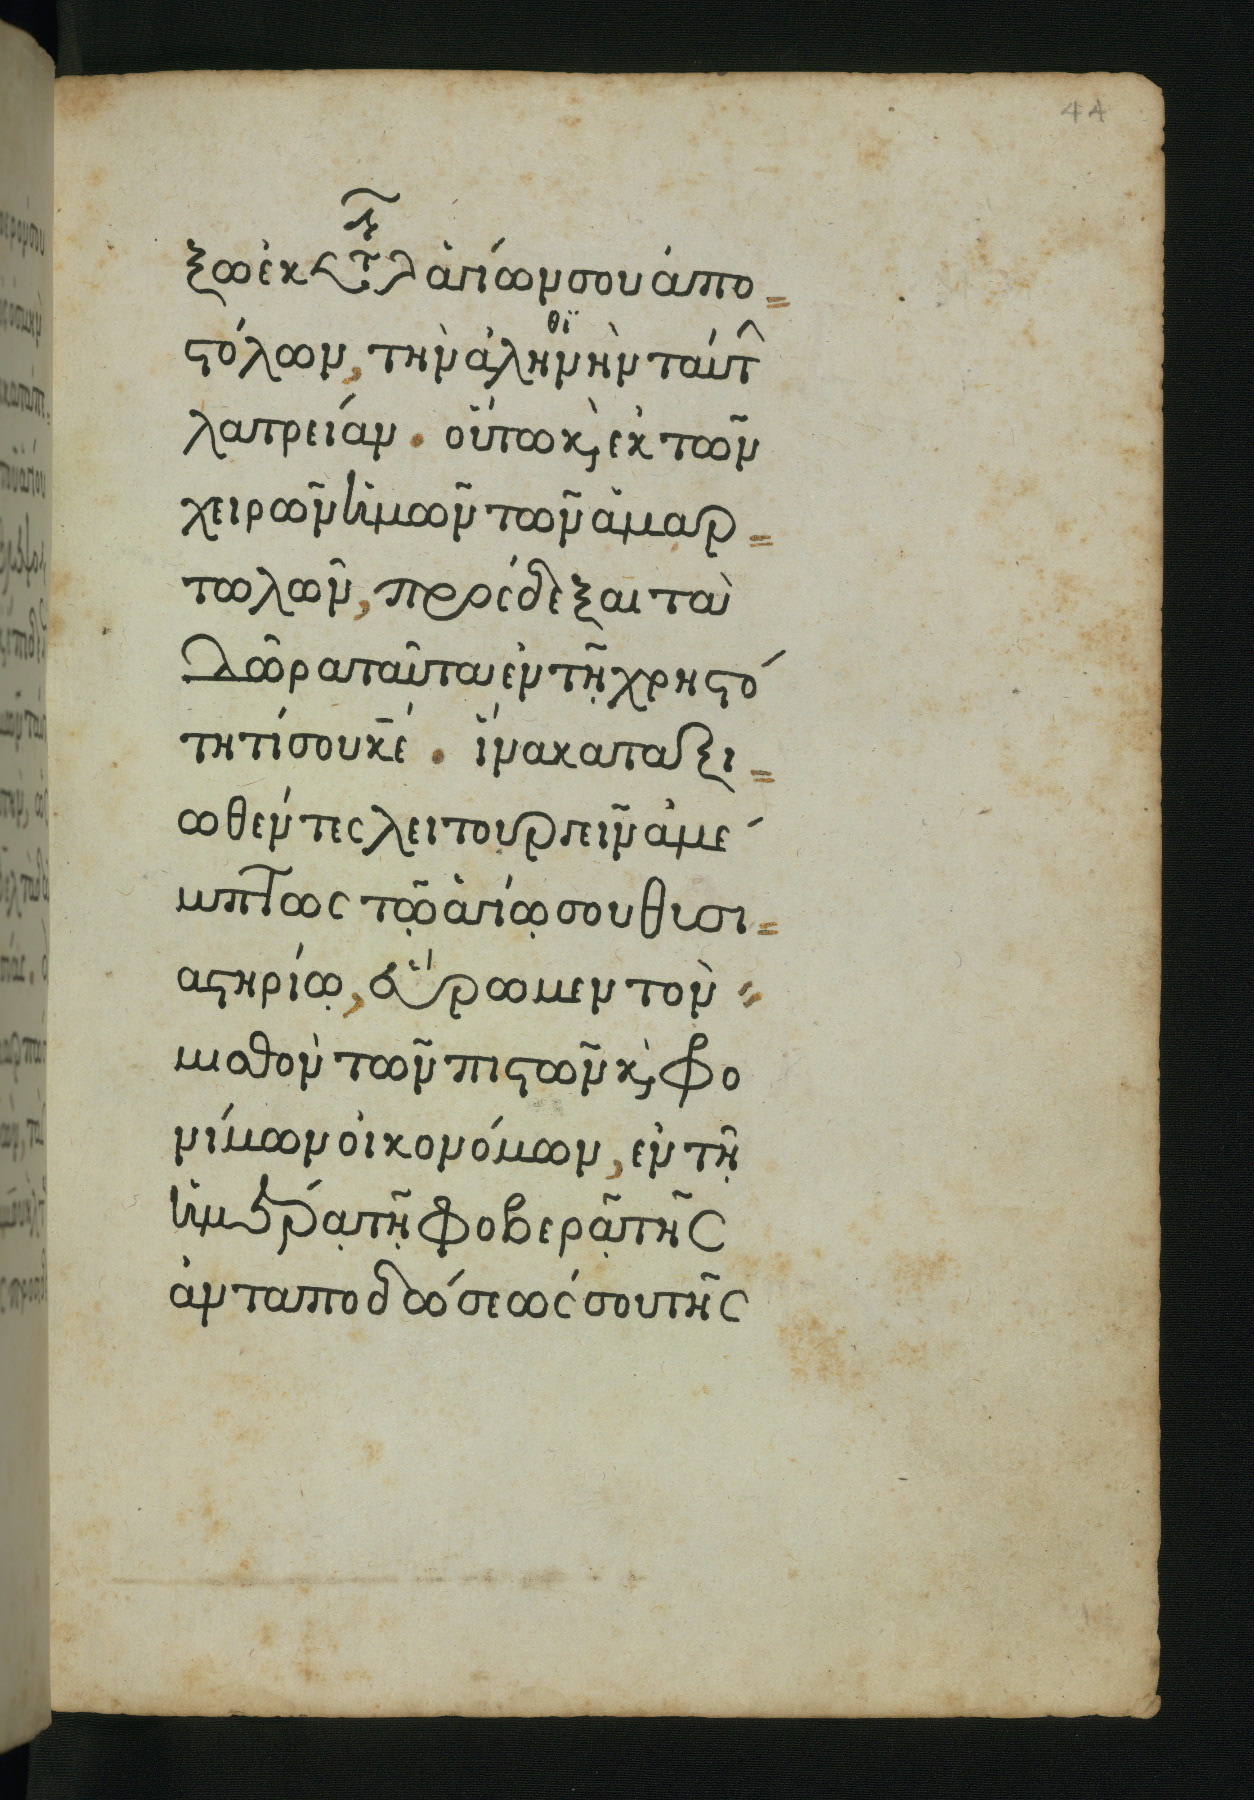 ξω ἐκ τῶν ἁγίων σου ἀπο=
στόλων, τὴν ἀληθϊνὴν ταύτ
λατρείαν. οὕτω κ, ἐκ τῶν
χειρῶν ἡμῶν τῶν ἁμαρ=
τωλῶν, πρόσδεξαι τὰ
δῶρα ταῦτα ἐν τῇ χρηστό
τητί σου κ̅ε̅. ἵνα καταξι=
ωθέντες λειτουργεῖν ἀμέ
μπτως τῷ ἁγίῳ σου θυσι=
αστηρίῳ, εὕρωμεν τὸν
μισθὸν τῶν πιστῶν κ, φρο
νίμων οἰκονόμων, ἐν τῇ
ἡμέρᾳ τῇ φοβερᾷ τῆς
ἀνταποδόσεώς σου τῆς
44